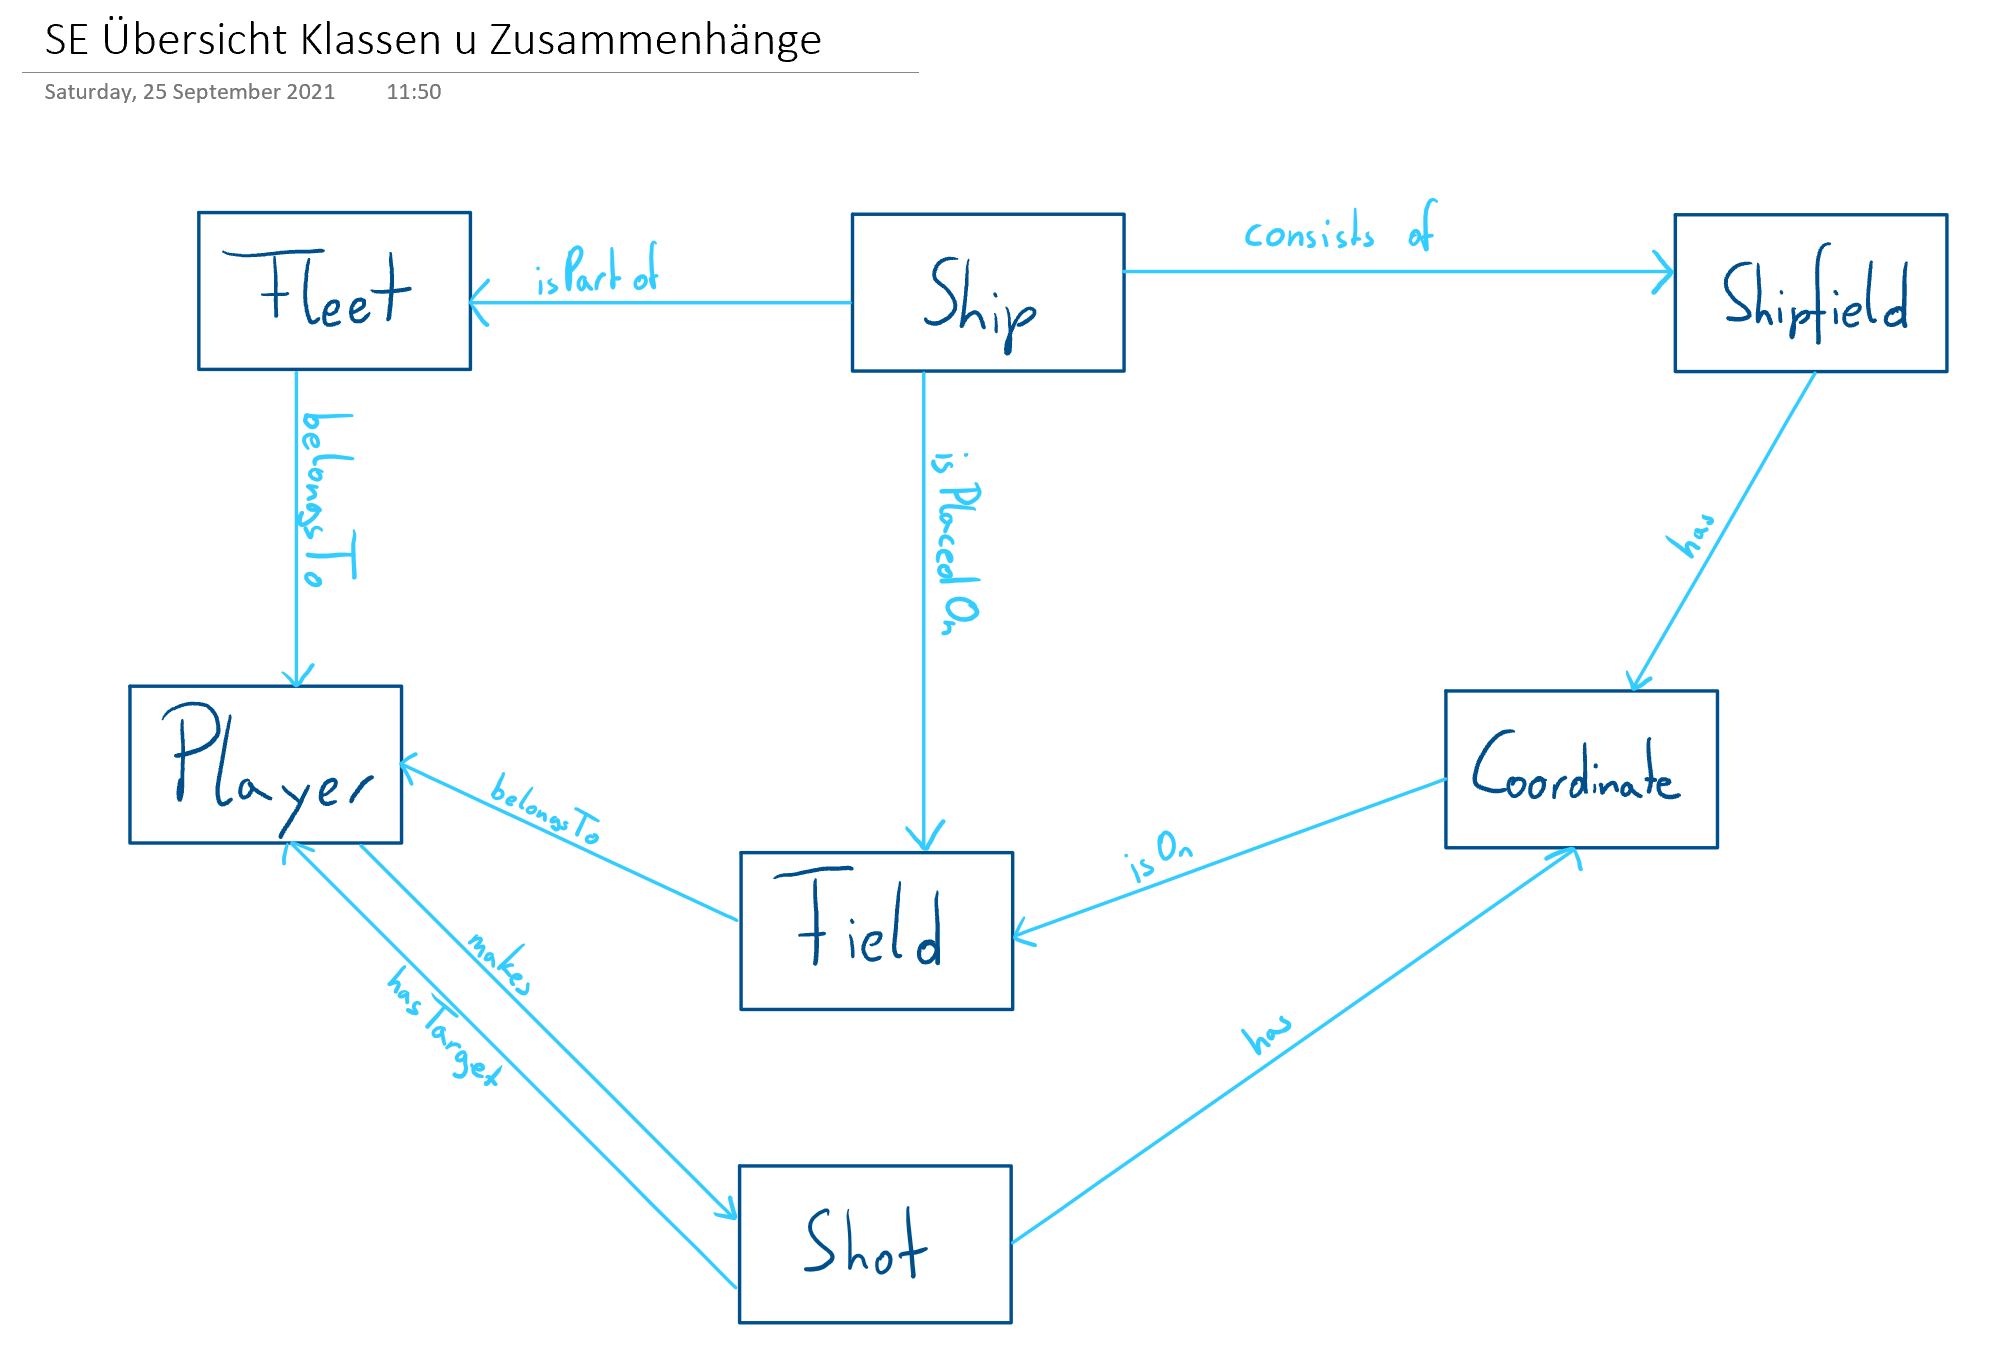 SE Übersicht Klassen u Zusammenhänge
Saturday, 25 September 2021 11:50
Fleet
isPart of
Ship
consists of
Shipfield
belongsTo
is Placed On
has
Player
belongsTo
Field
isOn
Coordinate
makes
hasTarget
has
Shot